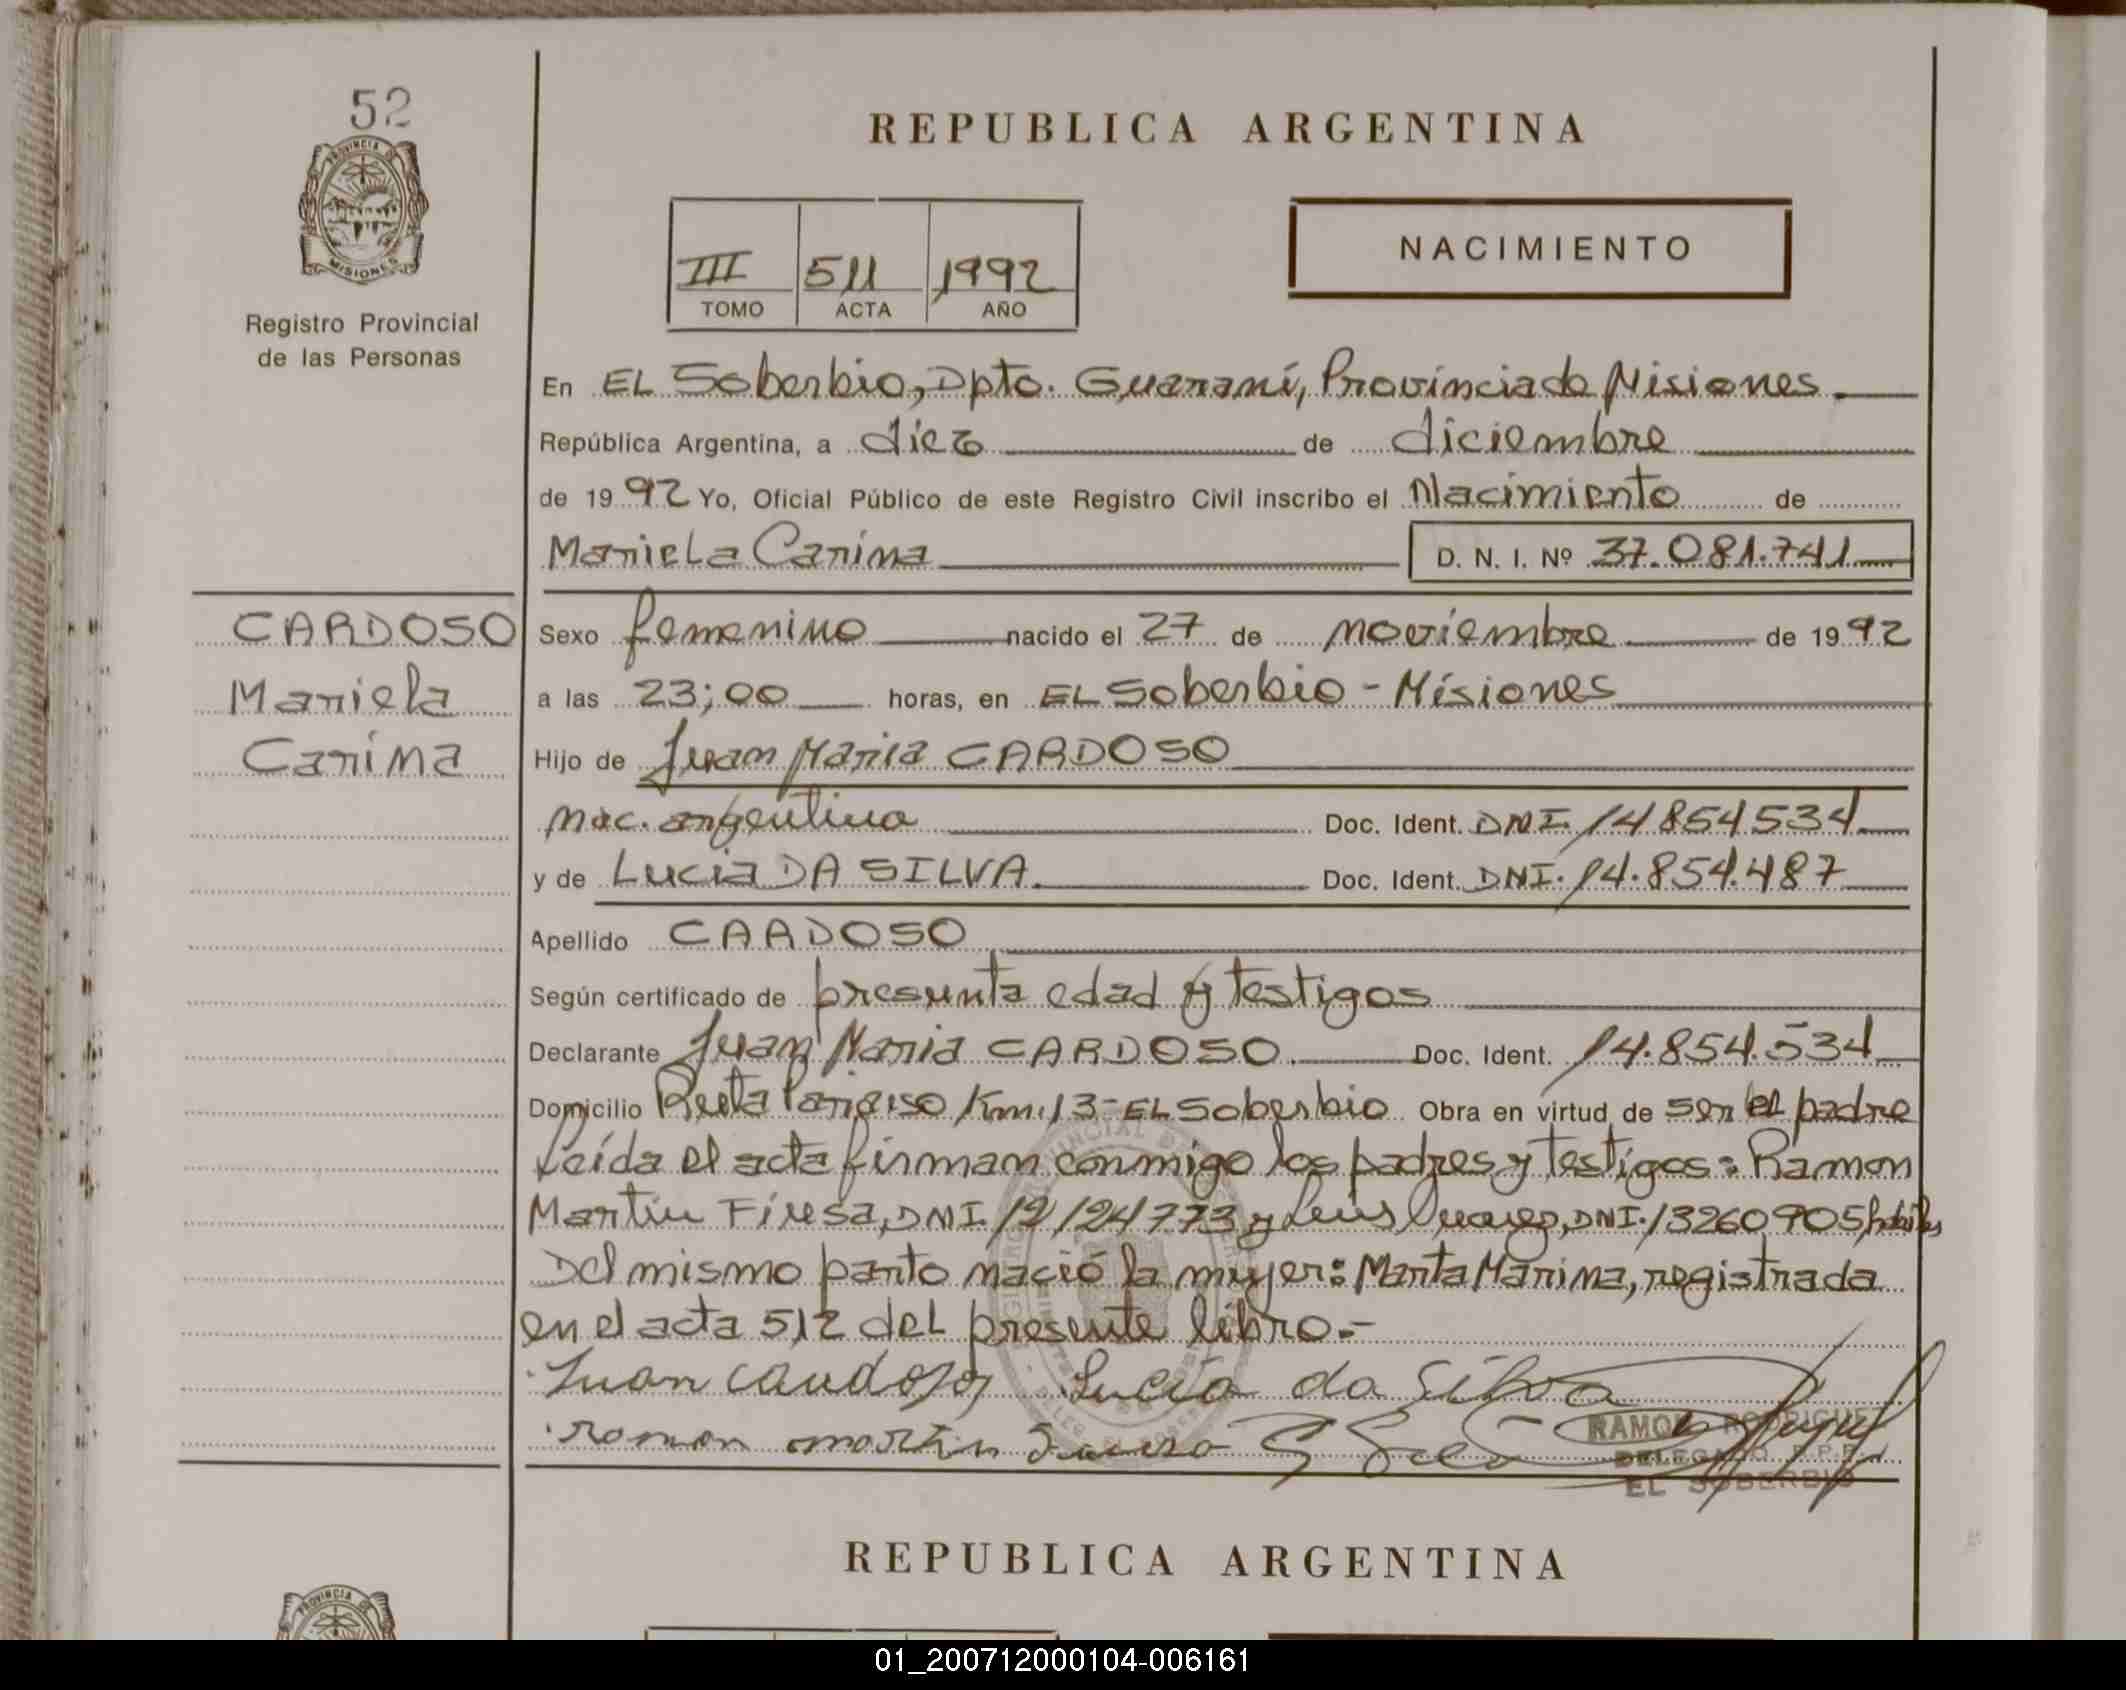 52
PROVINCIA DE
MISIONES
Registro Provincial
de las Personas
REPUBLICA ARGENTINA
III 511 1992
TOMO ACTA AÑO
NACIMIENTO
En EL Soberbio, Dpto. Guaraní, Provincia de Misiones
República Argentina, a diez de diciembre
de 1992 Yo, Oficial Público de este Registro Civil inscribo el Nacimiento de
Mariela Carina D. N. I. Nº 37.081.741
CARDOSO
Mariela
Carina
Sexo femenino nacido el 27 de noviembre de 1992
a las 23;00 horas, en EL Soberbio - Misiones
Hijo de Juan Maria CARDOSO
nac. argentina Doc. Ident. DNI. 14854534
y de Lucia DA SILVA Doc. Ident. DNI. 14.854.487
Apellido CARDOSO
Según certificado de presunta edad y testigos
Declarante Juan Maria CARDOSO Doc. Ident. 14.854.534
Domicilio Ruta Paraiso Km. 13 - EL Soberbio Obra en virtud de ser el padre
Leída el acta firman conmigo los padres y testigos: Ramon
Martin DNI. 12124773 y Luis DNI. 13260905 habiles
Del mismo parto nació la mujer: Marta Marina, registrada
en el acta 512 del presente libro.-
Juan Cardoso Lucia da Silva
ramon martin
RAMON RODRIGUEZ
DELEGADO R.P.P.
EL SOBERBIO
REPUBLICA ARGENTINA
PROVINCIA DE
01_200712000104-006161